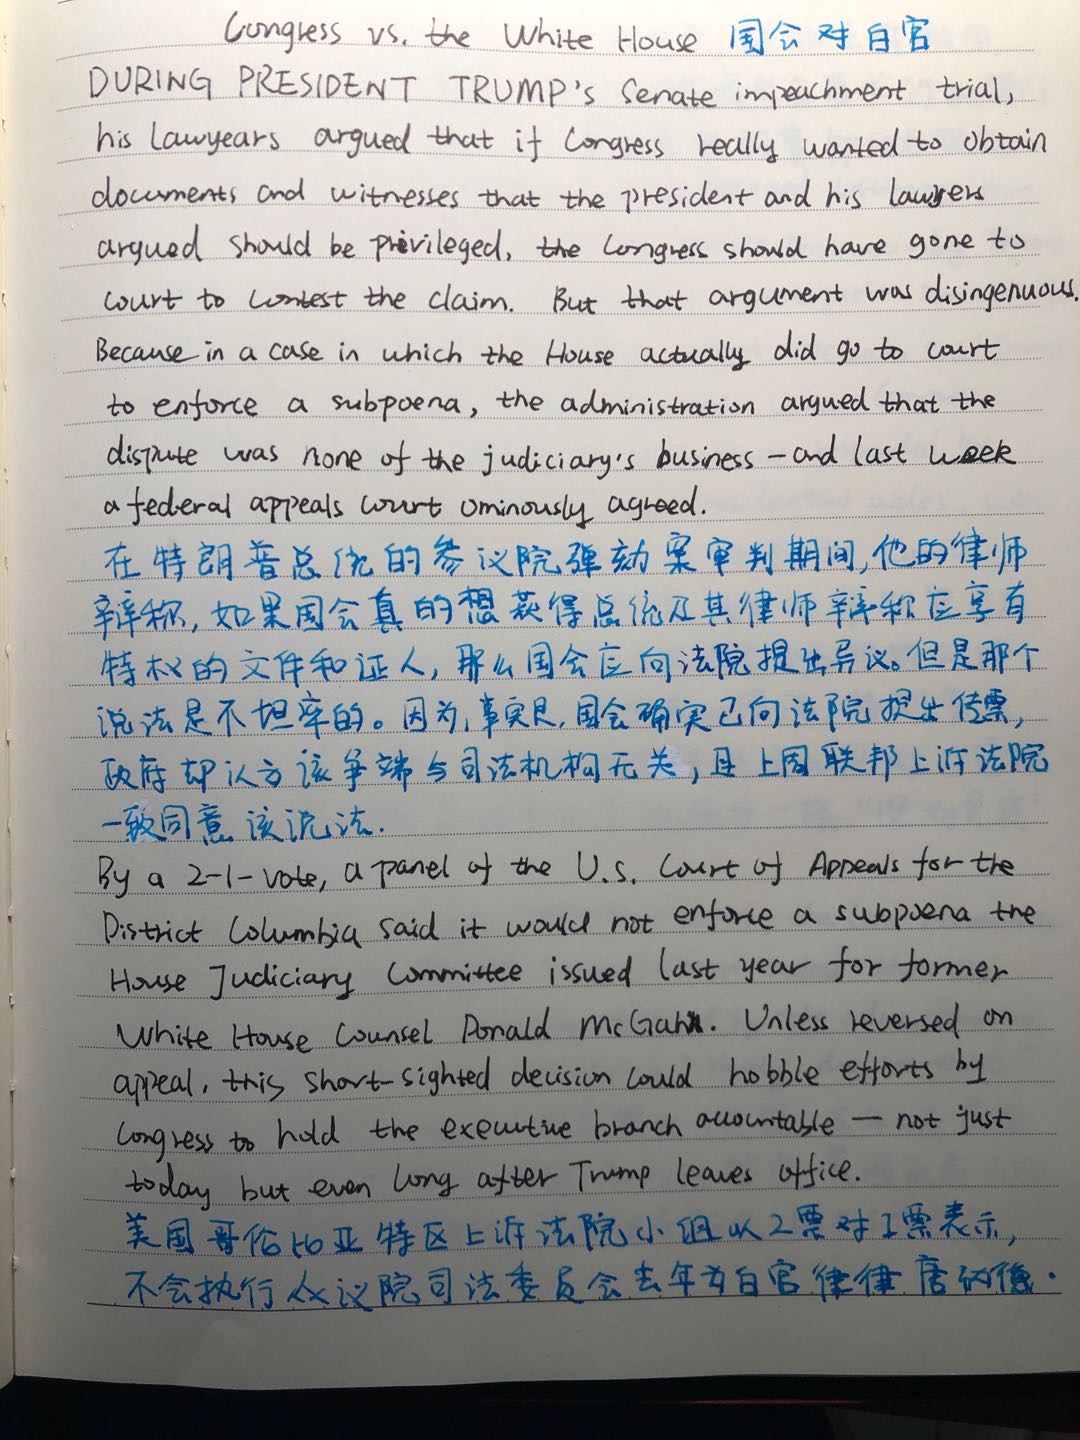 Congress vs. the White House 国会对白宫
DURING PRESIDENT TRUMP's Senate impeachment trial,
his lawyears argued that if Congress really wanted to obtain
documents and witnesses that the president and his lawyers
argued should be privileged, the Congress should have gone to
court to contest the claim. But that argument was disingenuous.
Because in a case in which the House actually did go to court
to enforce a subpoena, the administration argued that the
dispute was none of the judiciary's business — and last week
a federal appeals court ominously agreed.
在特朗普总统的参议院弹劾案审判期间,他的律师
辩称,如果国会真的想获得总统及其律师辩称应享有
特权的文件和证人,那么国会应向法院提出异议。但是那个
说法是不坦率的。因为,事实是,国会确实已向法院提出传票,
政府却认为该争端与司法机构无关,且上周联邦上诉法院
一致同意该说法.
By a 2-1-vote, a panel of the U.S. Court of Appeals for the
District Columbia said it would not enforce a subpoena the
House Judiciary Committee issued last year for former
White House Counsel Donald McGahn. Unless reversed on
appeal, this short-sighted decision could hobble efforts by
Congress to hold the executive branch accountable — not just
today but even long after Trump leaves office.
美国哥伦比亚特区上诉法院小组以2票对1票表示,
不会执行众议院司法委员会去年为白宫律律唐纳德·